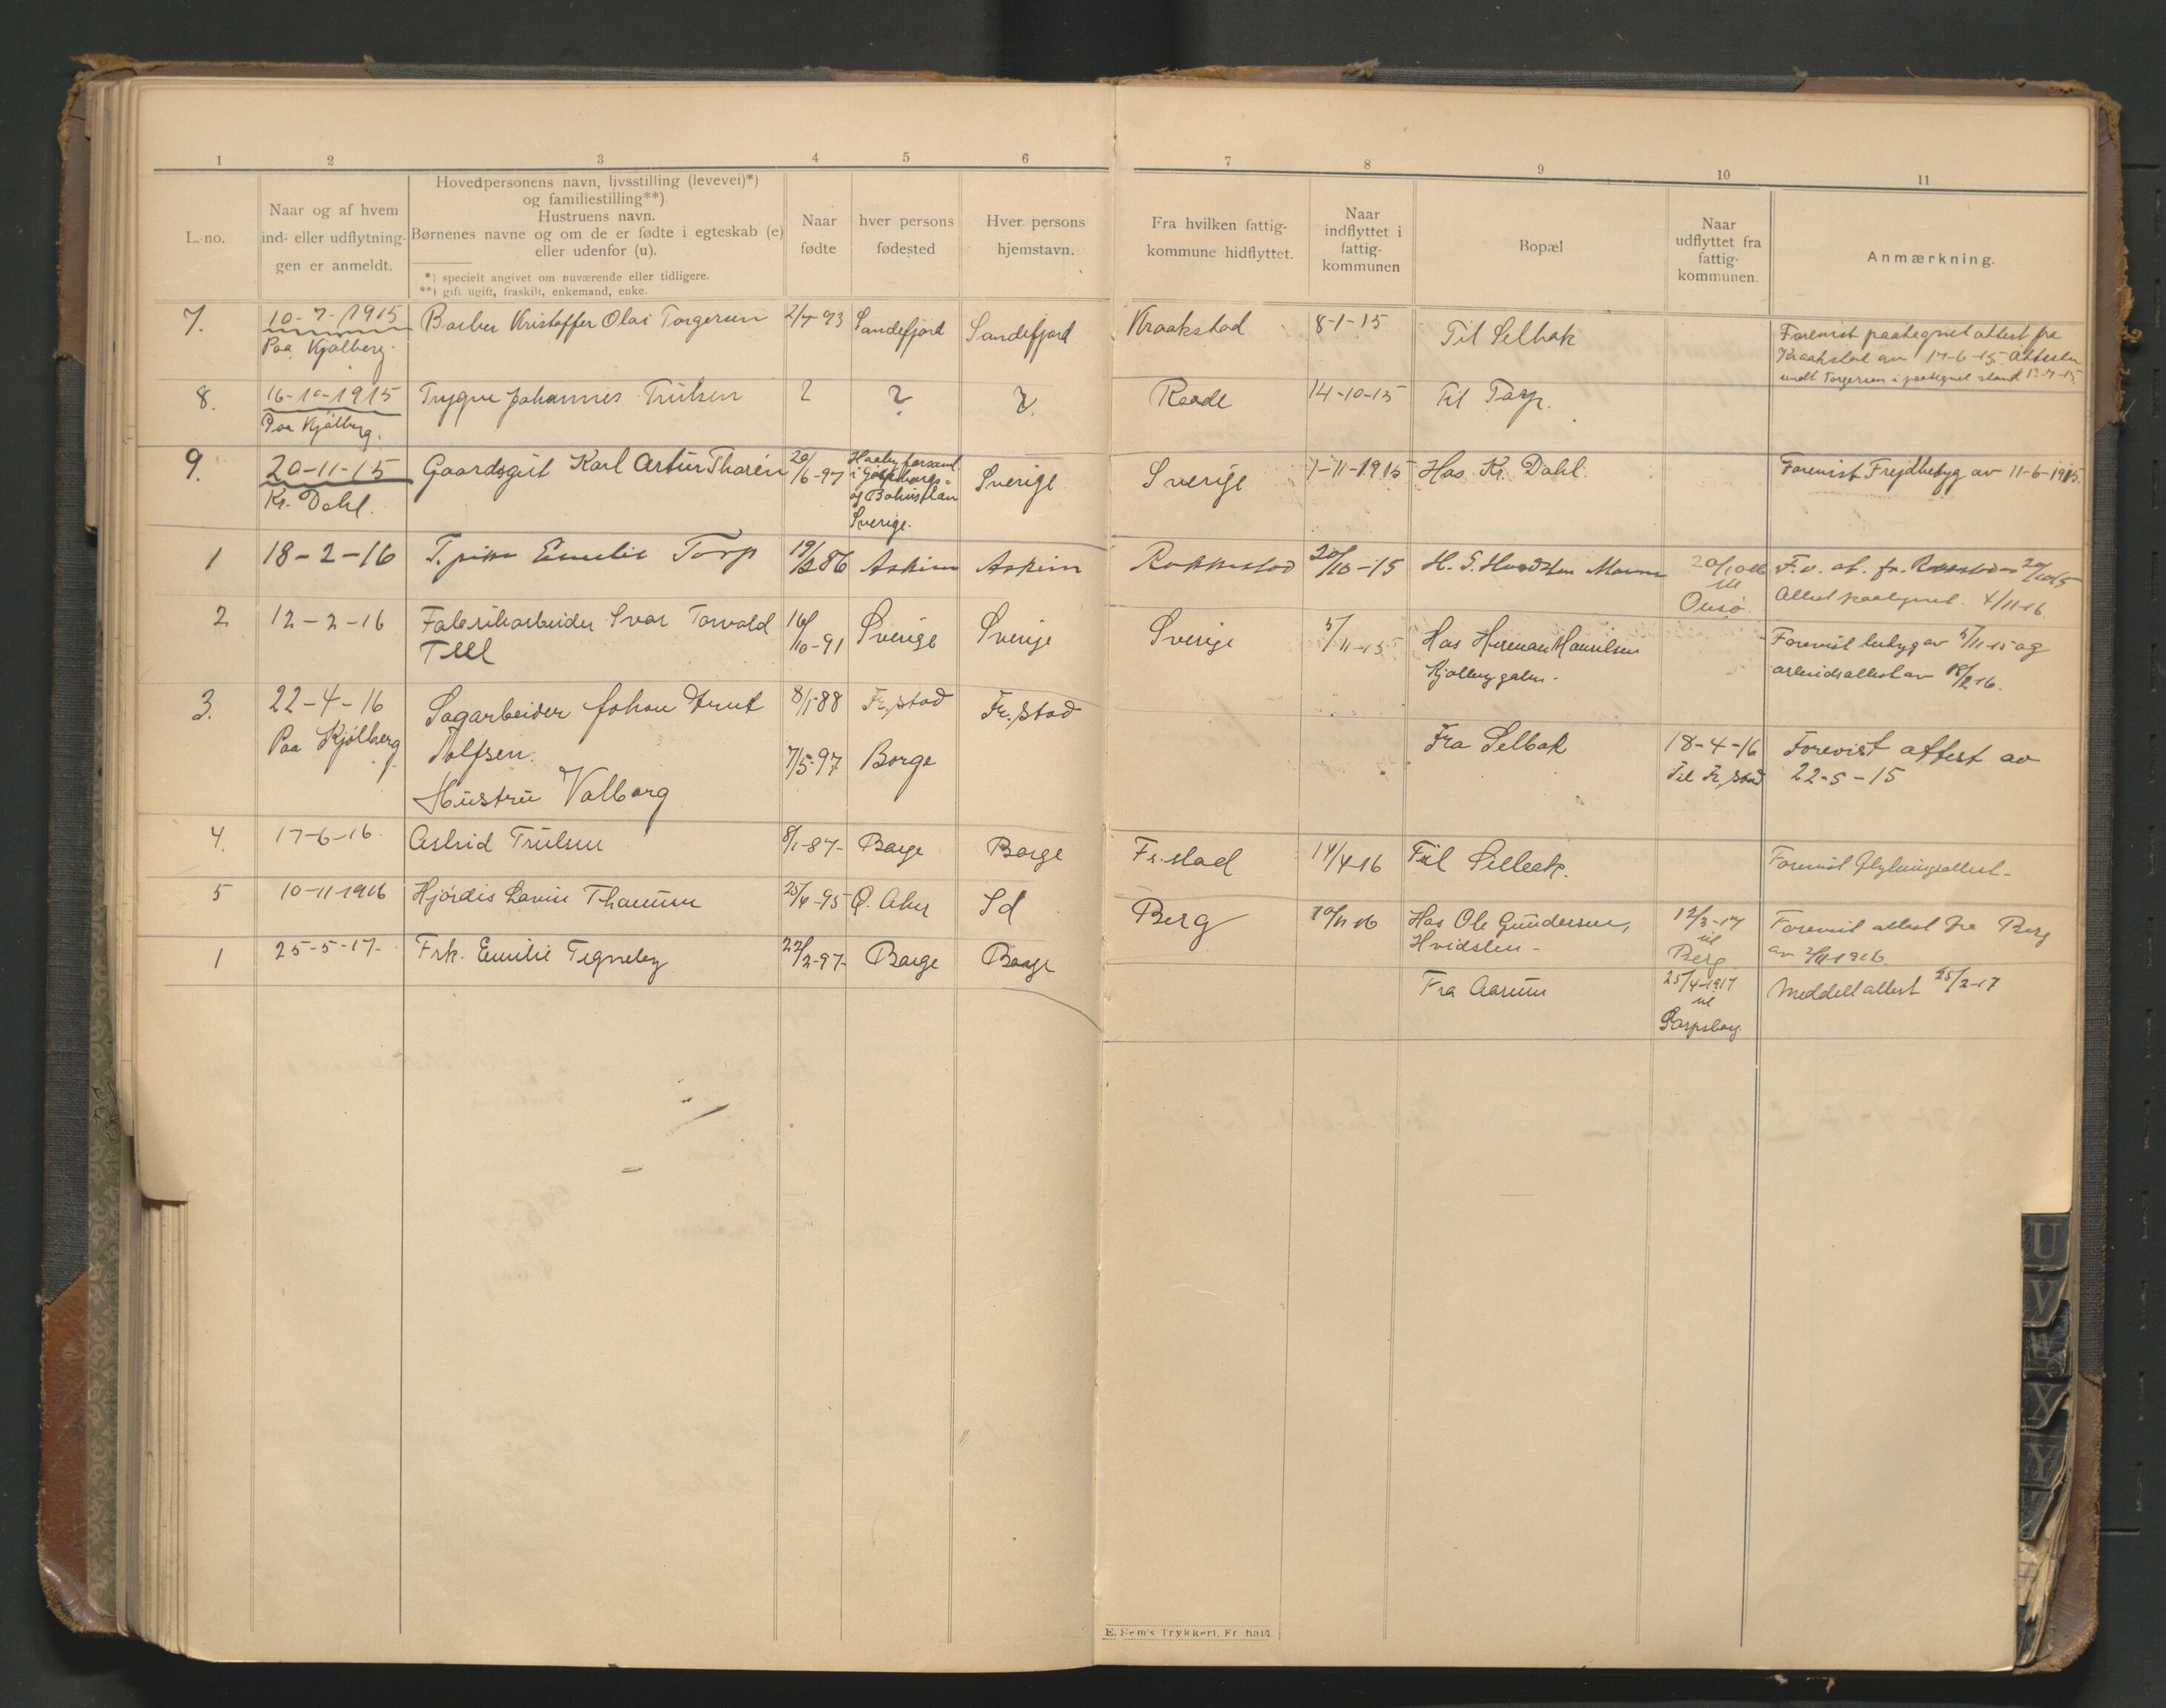 1 2 3 4 5 6 7 8 9 10 11
L.-no.
Naar og af hvem
ind- eller udflytnin-
gen er anmeldt.
Hovedpersonens navn, livsstilling (levevei)*)
og familiestilling**).
Hustruens navn.
Børnenes navne og om de er fødte i egteskab (e)
eller udenfor (u).
*) specielt angivet om nuværende eller tidligere.
**) gift ugift, fraskilt, enkemand, enke.
Naar
fødte
hver persons
fødested
Hver persons
hjemstavn.
Fra hvilken fattig-
kommune hidflyttet.
Naar
indflyttet i
fattig-
kommunen
Bopæl
Naar
udflyttet fra
fattig-
kommunen.
Anmærkning.
7. 10-7-1915 Barber Kristoffer Olai Torgersen 2/7-93 Sandefjord Sandefjord Kraakstad 8-1-15 Til Selbak Forevist paategnet attest fra
Paa Kjølberg. Kraakstad av 17-6-15 Attesten
sendt Torgersen i paategnet stand
8. 16-10-1915 Trygve Johannes Trulsen ? ? ? Raade 14-10-15 Til Torp.
Paa Kjølberg.
9. 20-11-15 Gaardsgut Karl Artur Tharén 20/6-97 Sverige Sverige 1-11-1915 Hos Kr. Dahl. Forevist Frejdbetyg av 11-6-1915.
Kr. Dahl. i Gøteborgs=
og Bohuslän
Sverige.
1 18-2-16 T.pike Emilie Torp 19/2 86 Askim Askim Rakkestad 20/10-15 20/10 til F.v. at. fr. Rakkestad 20/10 15
Onsø Attest paategnet. 4/11-16
2 12-2-16 Fabrikarbeider Ivar Torvald 16/10-91 Sverige Sverige Sverige 5/11-15 Hos Herman Forevist betyg av 5/11-15 og
Tell arbeidsattest av 18/2 16.
3. 22-4-16 Sagarbeider Johan 8/1-88 Fr.stad Fr.stad Fra Selbak 18-4-16 Forevist attest av
Paa Kjølberg Tolfsen. 7/5-97 Borge Til Fr.stad 22-5-15
Hustru Valborg
4. 17-6-16. Astrid Trulsen 8/1-87- Borge Borge Fr.stad 14/4-16 Til Selbak. Forevist flytningsattest-
5 10-11-1916 Hjördis Lavise 25/4-95 Ø. Aker Sd Berg 10/11 16 Hos Ole Gundersen, 12/3-17 Forevist attest fra Berg
Hvidsten - til av 2/11 1916.
Berg
1 25-5-17- Frk. Emilie Tegneby 22/2-97- Borge Borge Fra Aarum 25/4-1917 Meddelt attest 25/2-17
til
Sarpsborg
E. Sem's Trykkeri, Fr.hald.
U
V
W
X
Y